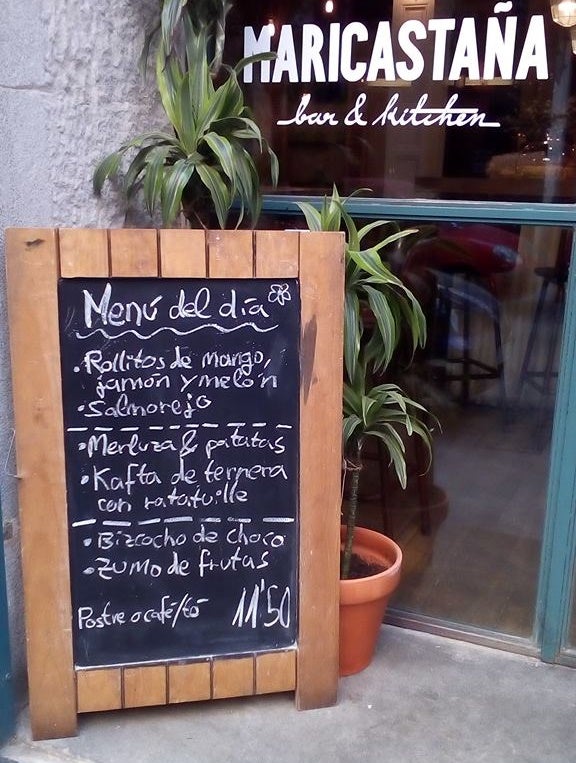 MARICASTAÑA
bar & kitchen
Menú del día
• Rollitos de mango,
jamón y melón
• Salmorejo
• Merluza & patatas
• Kafta de ternera
con ratatuille
• Bizcocho de choco
• Zumo de frutas
Postre o café/té 11'50